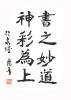 書之妙道
神彩為上